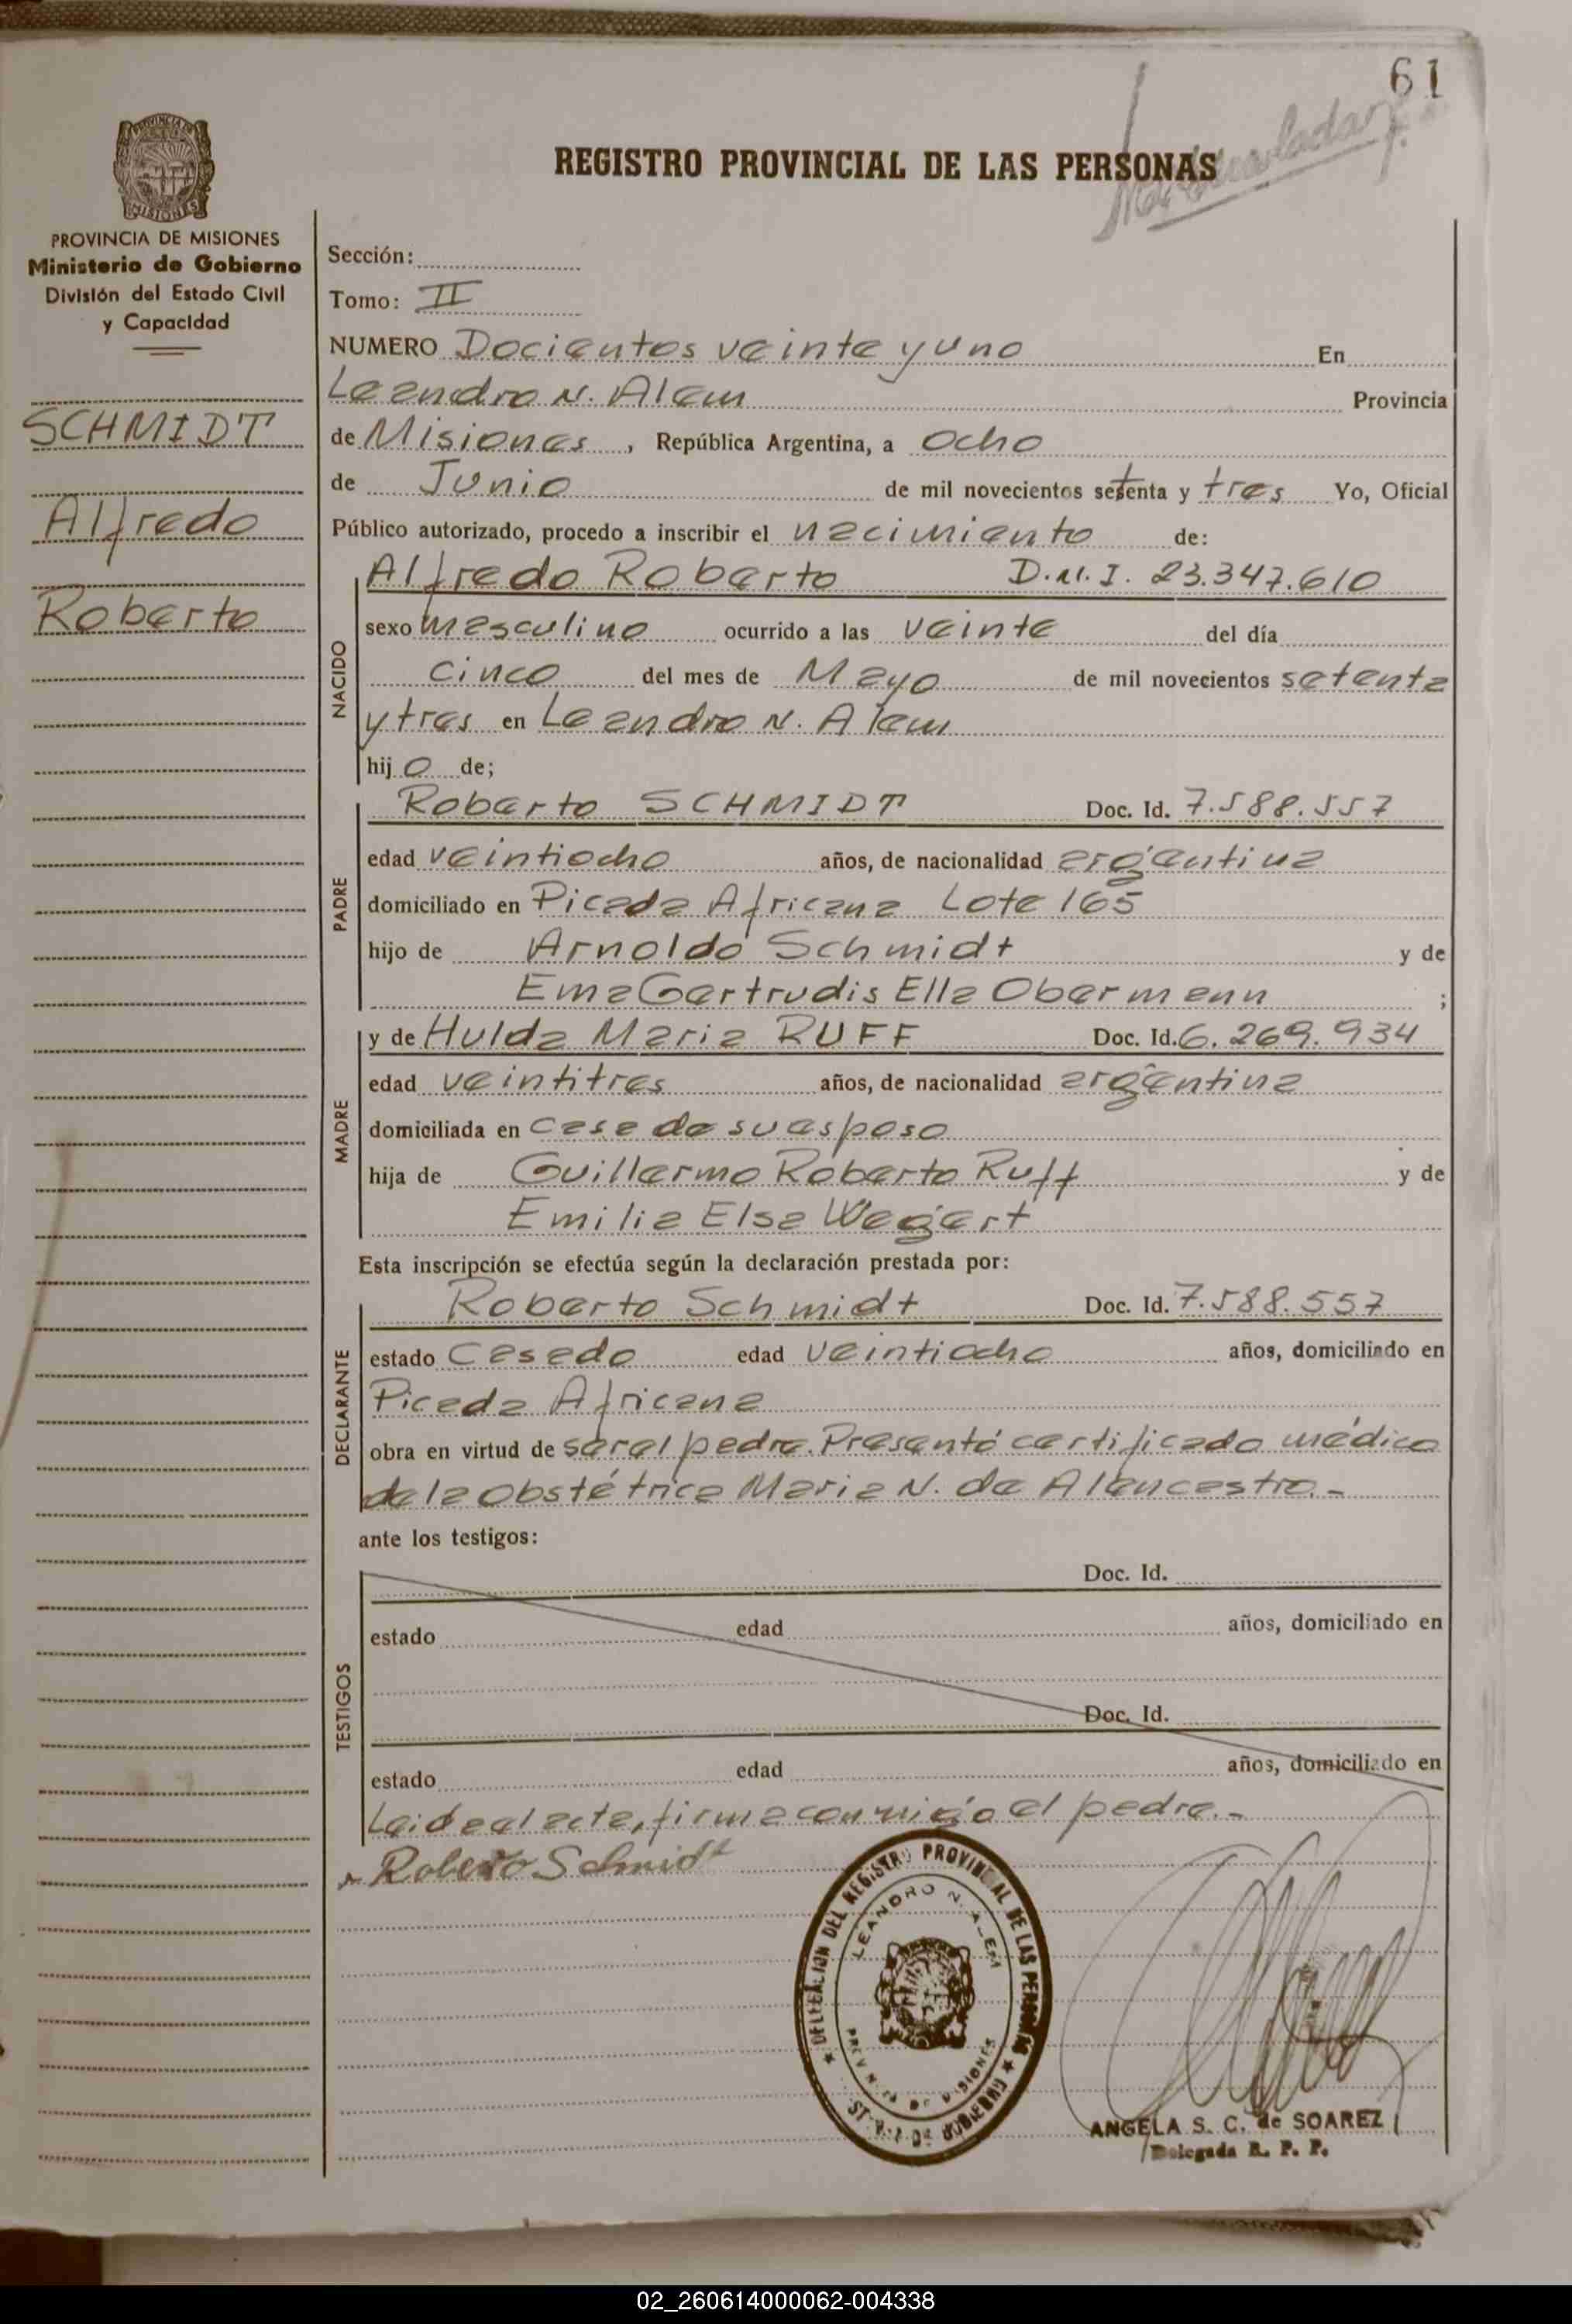 61
REGISTRO PROVINCIAL DE LAS PERSONAS
PROVINCIA DE MISIONES
MISIONES
PROVINCIA DE MISIONES
Ministerio de Gobierno
División del Estado Civil
y Capacidad
SCHMIDT
Alfredo
Roberto
Sección:
Tomo: II
NUMERO Docientos veinte y uno En
Leandro N. Alem Provincia
de Misiones, República Argentina, a ocho
de Junio de mil novecientos setenta y tres Yo, Oficial
Público autorizado, procedo a inscribir el nacimiento de:
NACIDO
Alfredo Roberto D.N.I. 23.347.610
sexo masculino ocurrido a las veinte del día
cinco del mes de Mayo de mil novecientos setenta
y tres en Leandro N. Alem
hijo de;
PADRE
Roberto SCHMIDT Doc. Id. 7.588.557
edad veintiocho años, de nacionalidad argentina
domiciliado en Picada Africana Lote 165
hijo de Arnoldo Schmidt y de
Ema Gertrudis Ella Obermann ;
MADRE
y de Hulda Maria RUFF Doc. Id. 6.269.934
edad veintitres años, de nacionalidad argentina
domiciliada en casa de su esposo
hija de Guillermo Roberto Ruff y de
Emilia Elsa Wegert
Esta inscripción se efectúa según la declaración prestada por:
DECLARANTE
Roberto Schmidt Doc. Id. 7.588.557
estado casado edad veintiocho años, domiciliado en
Picada Africana
obra en virtud de ser el padre. Presentó certificado médico
de la obstétrica Maria N. de Alencastro.-
ante los testigos:
TESTIGOS
Doc. Id.
estado edad años, domiciliado en
Doc. Id.
estado edad años, domiciliado en
Leida el acta, firma conmigo el padre.-
Roberto Schmidt
DELEGACION DEL REGISTRO PROVINCIAL DE LAS PERSONAS
LEANDRO N. ALEM
ANGELA S. C. de SOAREZ
Delegada R. P. P.
02_260614000062-004338